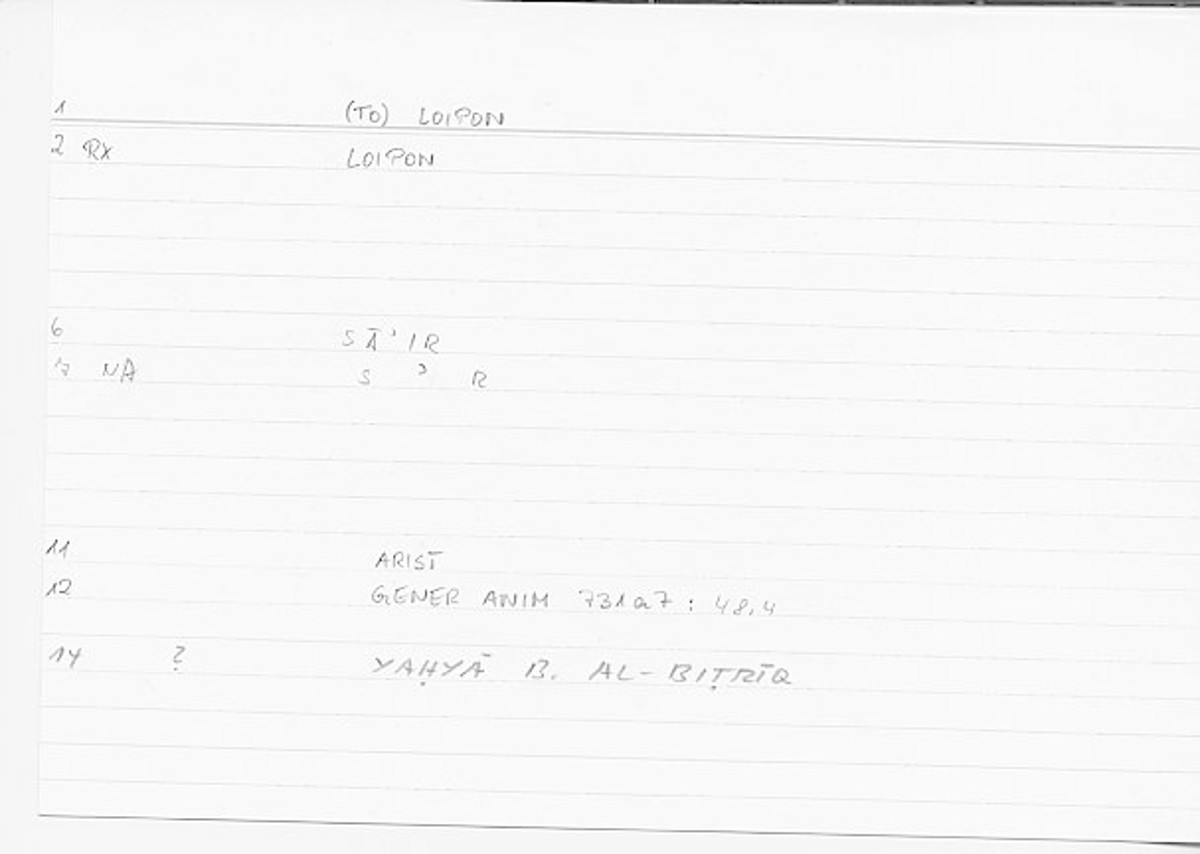 1 (TO) LOIPON
2 RX LOIPON
6 SĀ'IR
7 NA S ' R
11 ARIST
12 GENER ANIM 731a7 : 48,4
14 ? YAḤYĀ B. AL-BIṬRĪQ